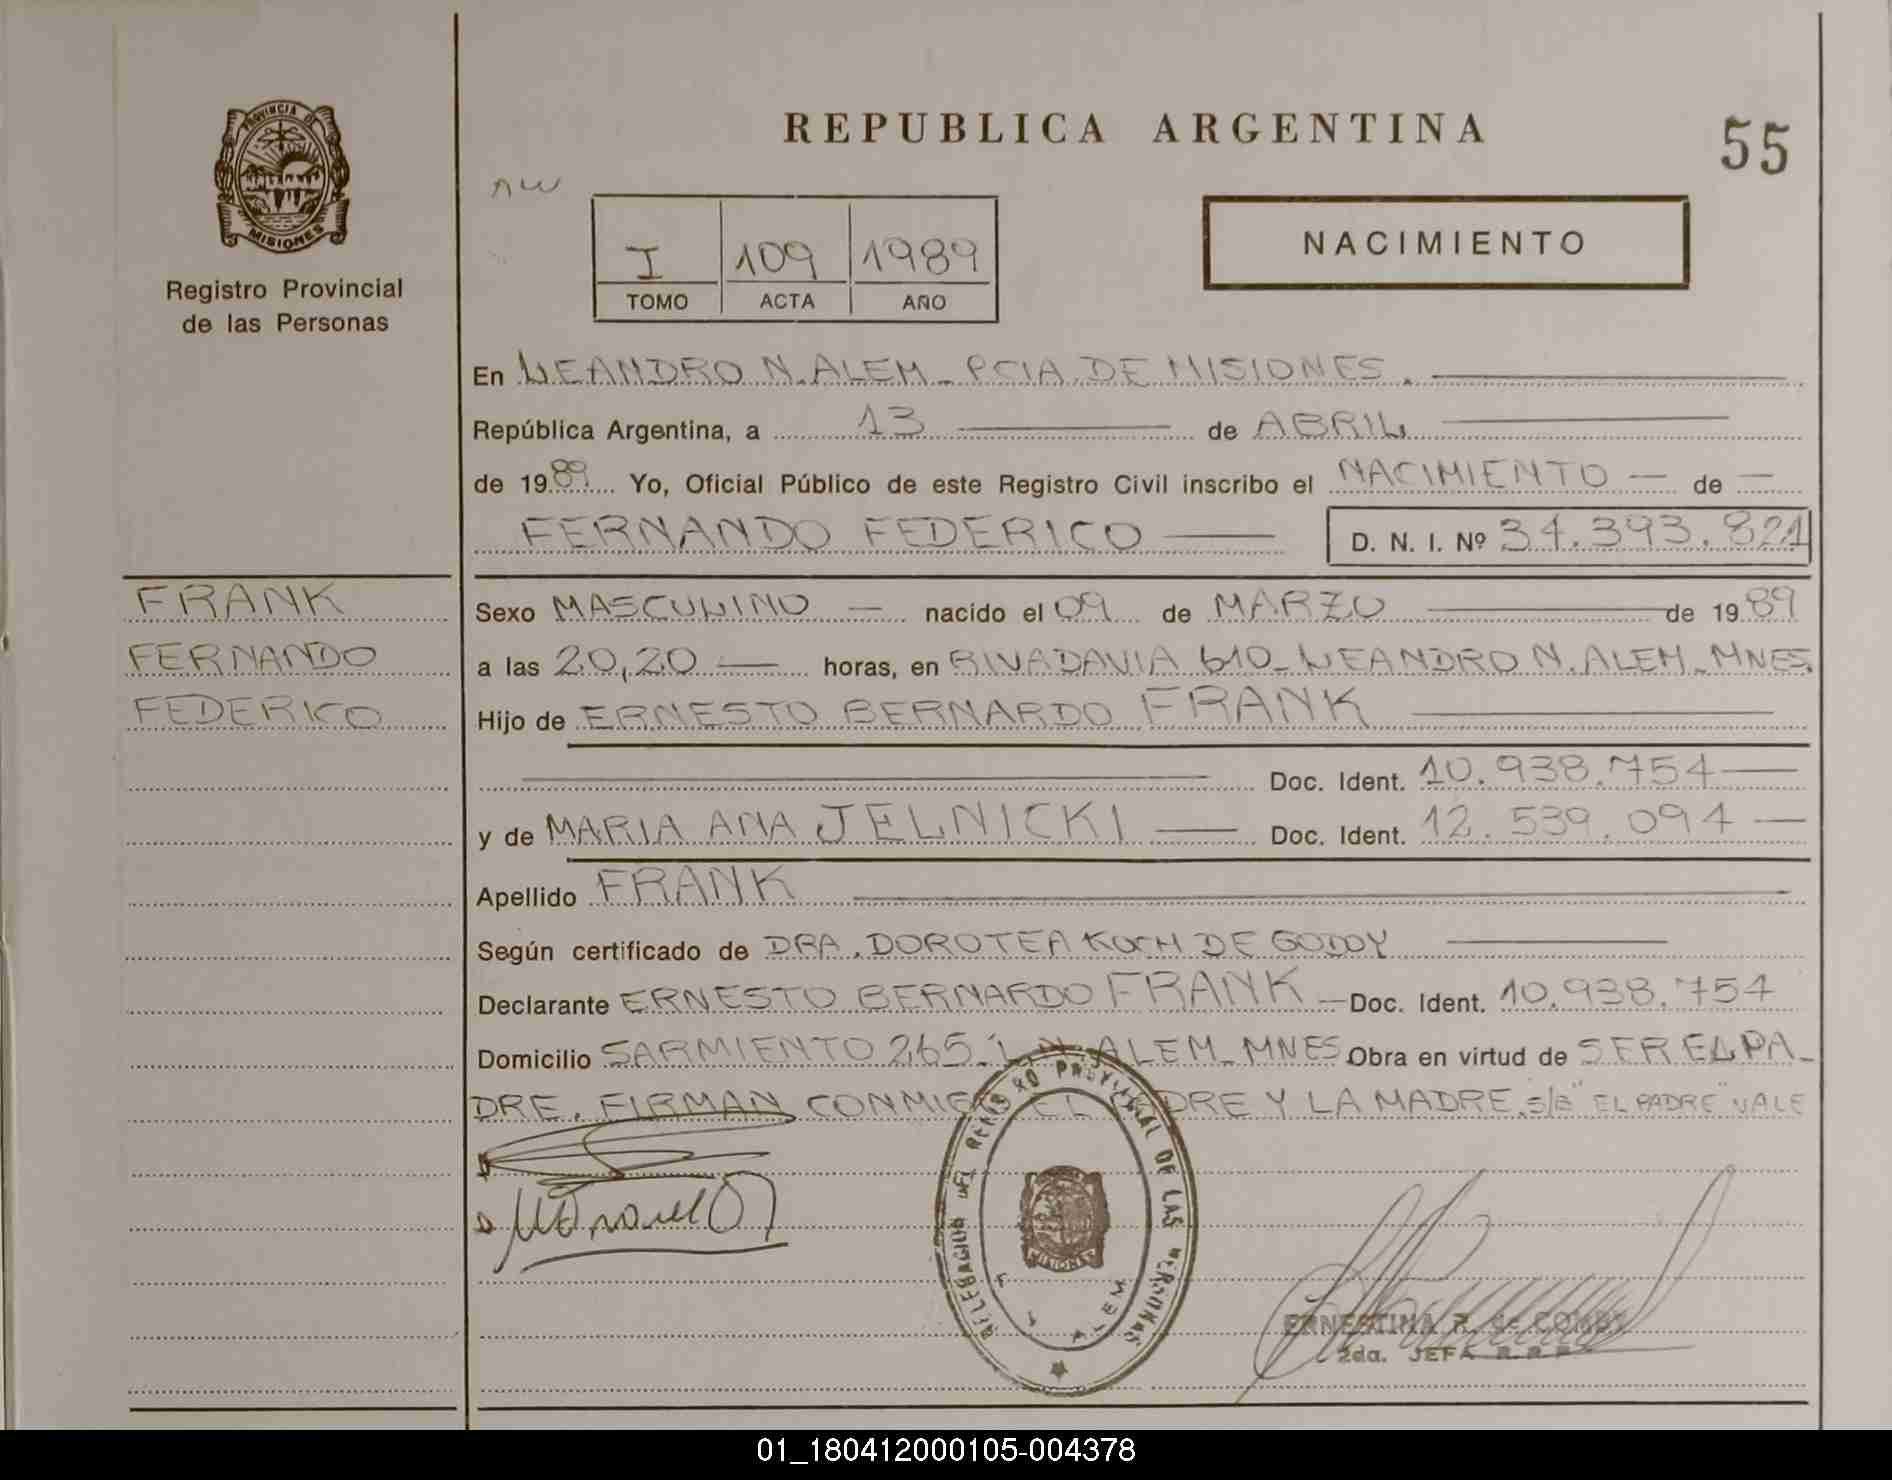 PROVINCIA DE
MISIONES
Registro Provincial
de las Personas
REPUBLICA ARGENTINA
55
NACIMIENTO
I 109 1989
TOMO ACTA AÑO
En LEANDRO N. ALEM - PCIA. DE MISIONES.
República Argentina, a 13 de ABRIL
de 1989 Yo, Oficial Público de este Registro Civil inscribo el NACIMIENTO de
FERNANDO FEDERICO D. N. I. Nº 34.393.821
FRANK
FERNANDO
FEDERICO
Sexo MASCULINO nacido el 09 de MARZO de 1989
a las 20,20 horas, en RIVADAVIA 610 - LEANDRO N. ALEM - MNES.
Hijo de ERNESTO BERNARDO FRANK
Doc. Ident. 10.938.754
y de MARIA ANA JELNICKI Doc. Ident. 12.539.094
Apellido FRANK
Según certificado de DRA. DOROTEA KOCH DE GODOY
Declarante ERNESTO BERNARDO FRANK Doc. Ident. 10.938.754
Domicilio SARMIENTO 265 - L. N. ALEM - MNES Obra en virtud de SER EL PA-
DRE. FIRMAN CONMIGO EL PADRE Y LA MADRE. s/b "EL PADRE" VALE
DELEGACION DEL REGISTRO PROVINCIAL DE LAS PERSONAS
MISIONES
ALEM
ERNESTINA R. de
2da. JEFA R.R.P.
01_180412000105-004378